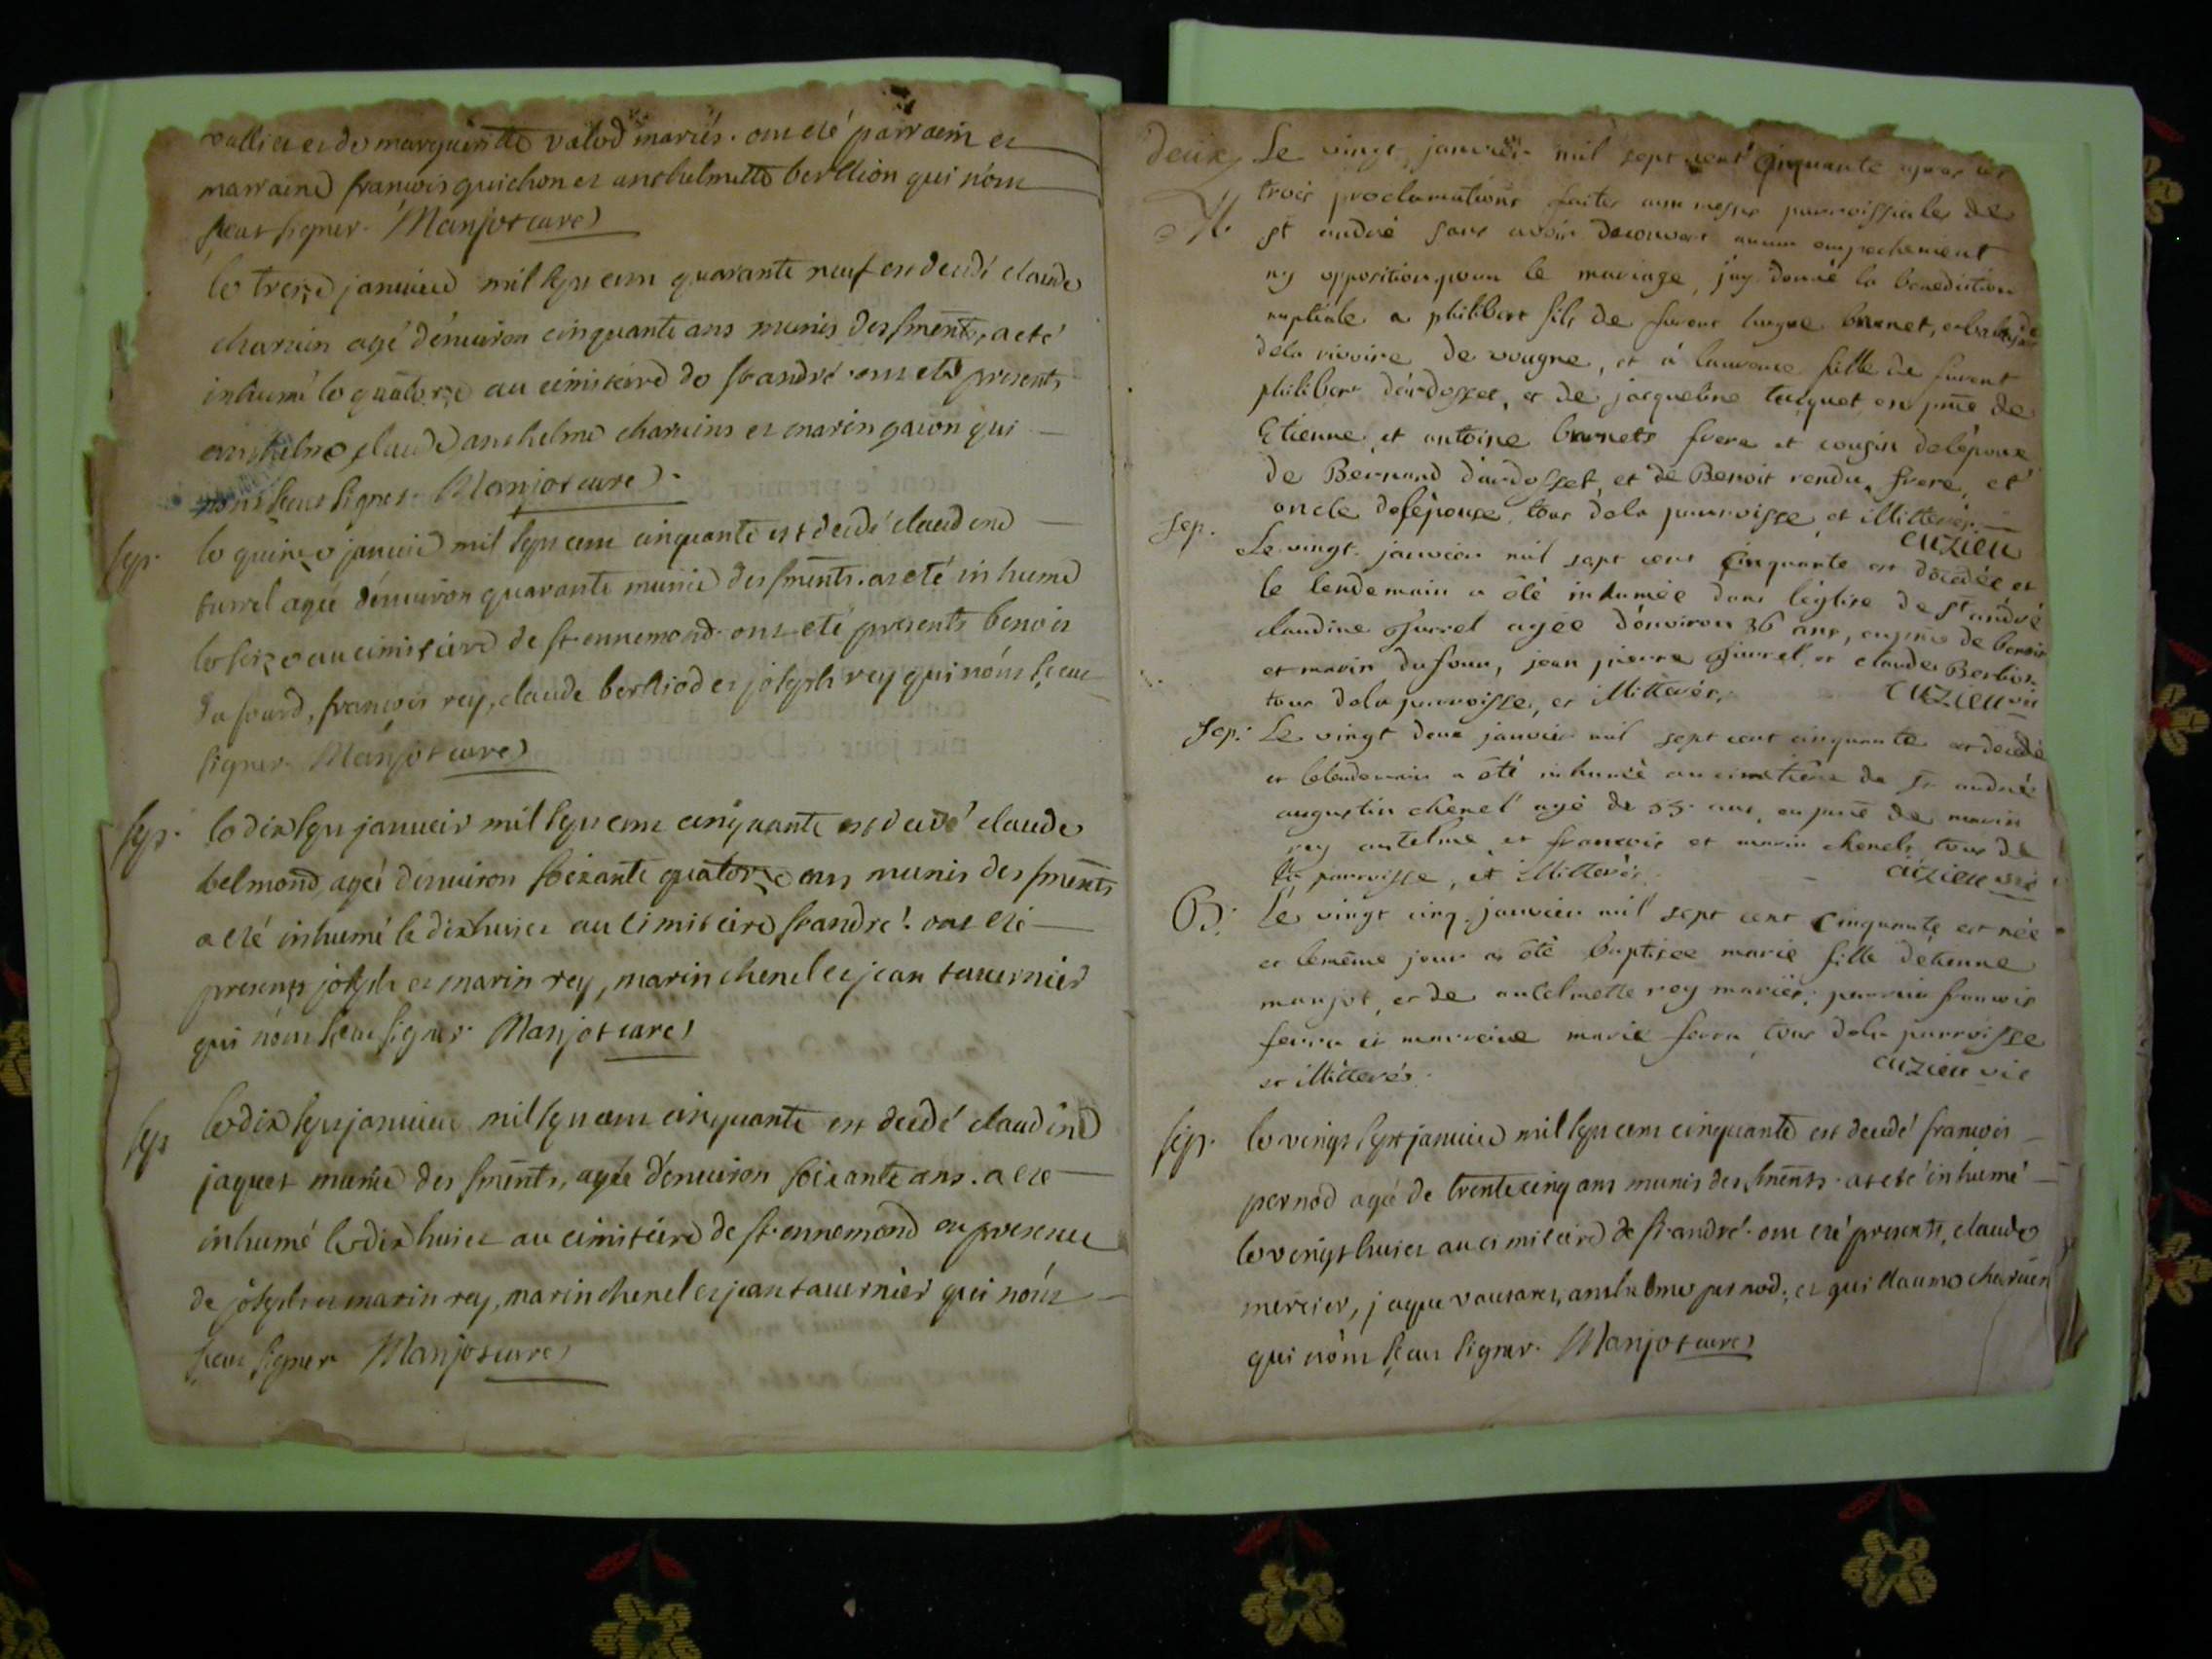 vallier et de margueritte valod mariés. ont eté parraein et
marraine francois guichon et anthelmette berllion qui nónt
sceut signer. Manjot curé
le treize janvier mil sept cent quarante neuf est decedé claude
charuin agé dénviron cinquante ans munis des smēnts, a eté
inhumé le quatorze au cimiteire de st andré. ont eté presents
anthelme, claude anthelme charuins et marin gacon qui
nont sceut signer. Manjot curé.
sep. le quinze janvier mil sept cent cinquante est decedé claudine
surrel agée dénviron quarante munie des smēnts. at eté inhumé
le seize au cimiteire de st ennemond. ont eté presents benoit
du fourd, francois rey, claude berlliod et joseph rey qui nónt sceut
signer. Manjot curé
sep. le dix sept janveir mil sept cent cinquante est decedé claude
belmond, agée dénviron soixante quatorze ans munis des smēnts
a eté inhumé le dixhuict au cimiteire st andré. ont eté
presents joseph et marin rey, marin chenel et jean tavernier
qui nónt sceut signer. Manjot curé
sep le dix sept janvier mil sept cent cinquante est decedé claudine
jaquet munie des smēnts, agée dénviron soixante ans. a eté
inhumé le dix huict au cimiteire de st ennemond en presence
de joseph et marin rey, marin chenel et jean tavernier qui nónt
sceut signer Manjot curé
deux Le vingt janvier mil sept cent cinquante apres les
M. trois proclamations faites aux messes parroissiales de
st andré sans avoir decouvert aucun empechement
ny opposition pour le mariage, j'ay donné la benediction
nuptiale a philibert fils de furent hugue brunet, et
dela rivoire de vougne, et á laurence fille de furent
philibert dárdosset, et de jacqueline tacquet en pnce de
Etienne et antoine brunets frere et cousin delépoux
de Bernard dardosset, et de Benoit rendu, frere, et
oncle delépouse, tous dela parroisse et illitterés.
cuzieu
Sep. Le vingt janvier mil sept cent cinquante est décedée et
le lendemain a été inhumée dans léglise de st andré
claudine surrel agée dénviron 36 ans, en pnce de benoit
et marin dufour, jean pierre surrel, et claude Berlio
tous dela parroisse, et illitterés. cuzieu vic
Sep. Le vingt deux janvier mil sept cent cinquante est decedé
et lelendemain a été inhumé au cimetiere de st andré
augustin chenel agé de 55 ans, en pnce de marin
rey antelme et francois et marin chenels tous de
la parroisse, et illitterés. cuzieu vic
B. Le vingt cinq janvier mil sept cent cinquante est née
et lemême jour a été baptisée marie fille détienne
manjot, et de antelmette rey mariés, parrain francois
ferra et marraine marie ferra tous dela parroisse
et illitterés. cuzieu vic
sep. le vingt sept janvier mil sept cent cinquante est decedé francois
pernod agé de trentecinq ans munis des smēnts. at eté inhumé
le vingt huict au cimiteire de st andré. ont eté presents, claude
mercier, jaque vautaret, anthelme pernod, et guillaume charuin
qui nónt sceut signer. Manjot curé